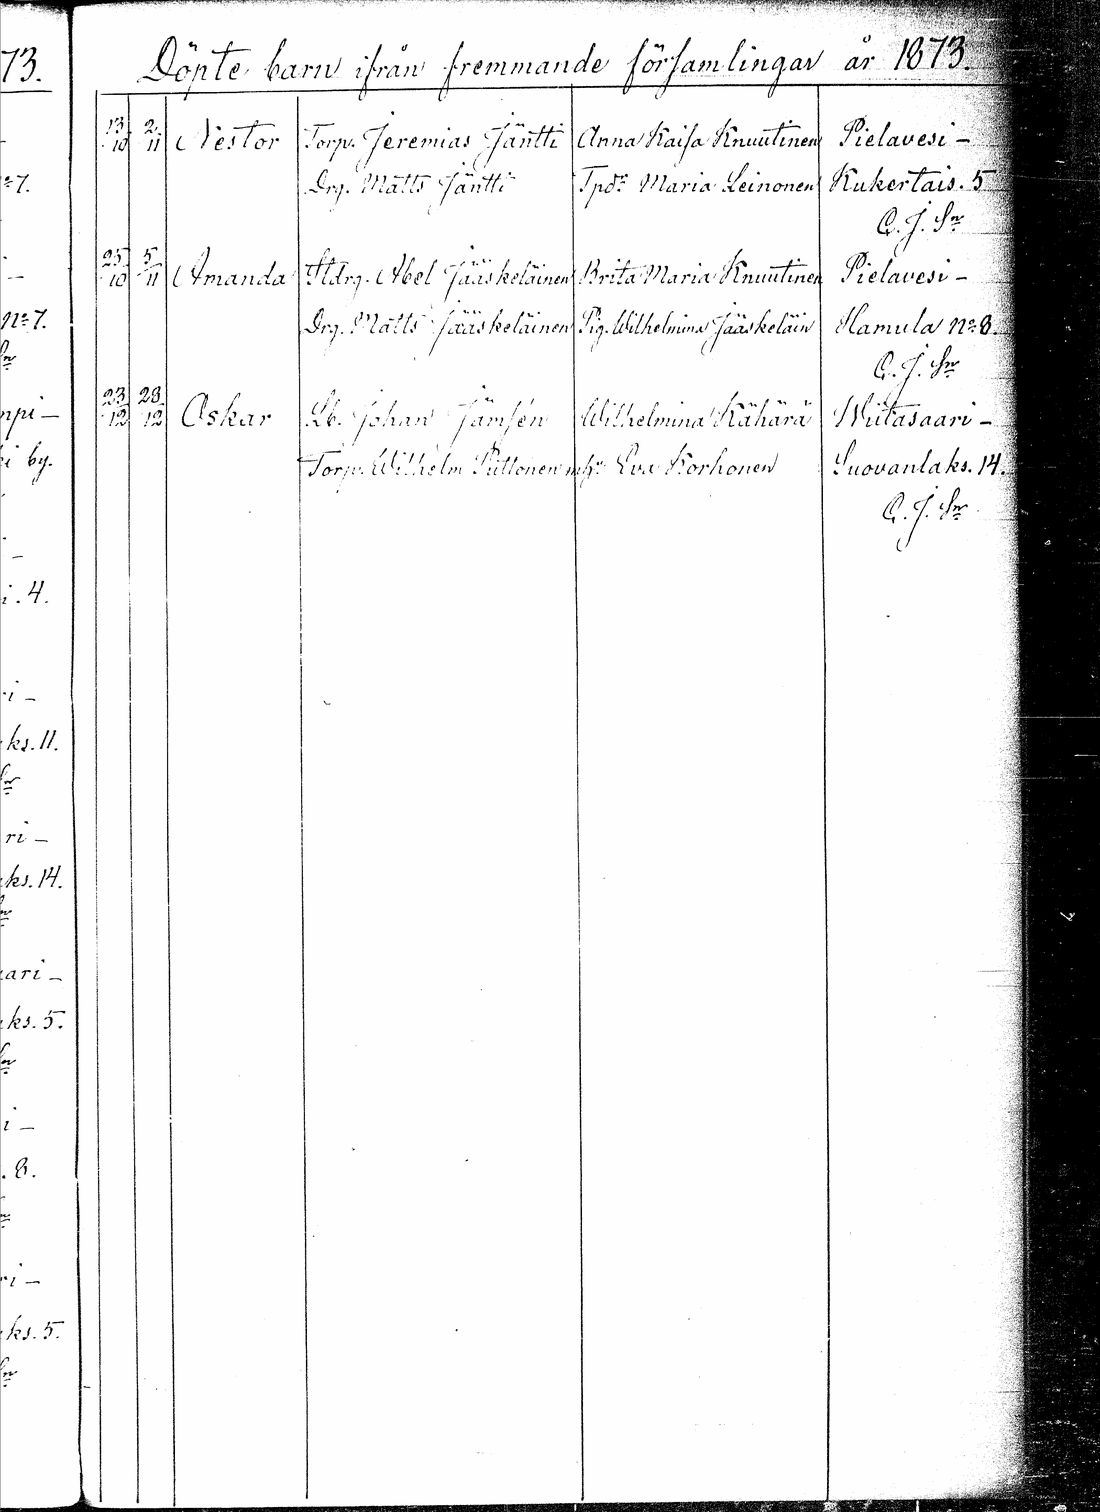 73.
Döpte barn ifrån fremmande församlingar år 1873.
13/10 2/11 Nestor Torp. Jeremias Jäntti Anna Kaisa Knuutinen Pielavesi -
Drg. Matts Jäntti Tpdr Maria Leinonen Kukertais. 5
C. J. Sn
25/10 5/11 Amanda Abel Jääskeläinen Brita Maria Knuutinen Pielavesi -
Drg. Matts Jääskeläinen Pig. Wilhelmina Jääskeläin Hamula No 8.
C. J. Sn
23/12 28/12 Oskar Lb. Johan Jämsén Wilhelmina Kähärä Wiitasaari -
Torp. Wilhelm Puttonen m h. Eva Korhonen Suovanlaks. 14.
C. J. Sn
No 7.
No 7.
mpi -
ki by.
i. 4.
ri -
ks. 11.
ri -
ks. 14.
aari -
ks. 5.
i -
. 8.
ri -
ks. 5.